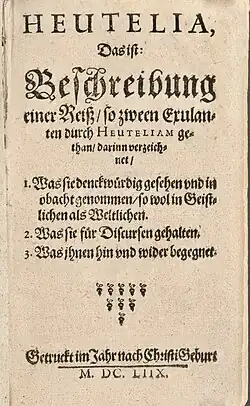 HEUTELIA,
Das ist:
Beschreibung
einer Reiß/ so zween Exulan-
ten durch HEUTELIAM ge-
than/ darinn verzeich-
net/
1. Was sie denckwürdig gesehen vnd in
obacht genommen/ so wol in Geist-
lichen als Weltlichen.
2. Was sie für Discursen gehalten.
3. Was jhnen hin vnd wider begegnet.
Getruckt im Jahr nach Christi Geburt
M. DC. LIIX.